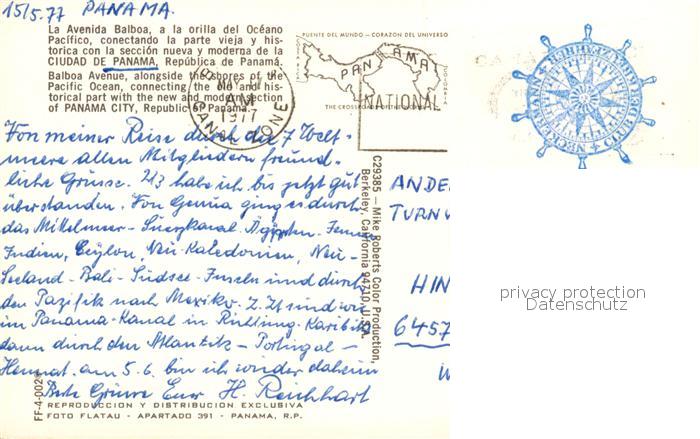 15/5.77 PANAMA.
La Avenida Balboa, a la orilla del Océano
Pacífico, conectando la parte vieja y his-
torica con la sección nueva y moderna de la
CIUDAD DE PANAMA, República de Panamá.
Balboa Avenue, alongside the shores of the
Pacific Ocean, connecting the old and his-
torical part with the new and modern section
of PANAMA CITY, Republic of Panama.
PUENTE DEL MUNDO — CORAZON DEL UNIVERSO
PANAMA
NATIONAL
AM
1977
Von meiner Reise durch die 7 Welt-
meere allen Mitgliedern freund-
liche Grüsse. 2/3 habe ich bis jetzt gut
überstanden. Von Genua ging es durch
das Mittelmeer - Suezkanal. Ägypten.
Indien, Ceylon, Neu-Kaledonien, Neu-
Seeland - Bali - Südsee - Inseln und durch
den Pazifik nach Mexiko. Z. Zt sind wir
im Panama-Kanal in Richtung Karibik
dann durch den Atlantik - Portugal -
Heimat. am 5.6. bin ich wieder daheim
Beste Grüsse Euer H. Reichhart
C29385 — Mike Roberts Color Production,
Berkeley, California 94710, U.S.A.
ANDE
TURNV
HIN
6457
FF-4-002
REPRODUCCION Y DISTRIBUCION EXCLUSIVA
FOTO FLATAU - APARTADO 391 - PANAMA, R.P.
privacy protection
Datenschutz